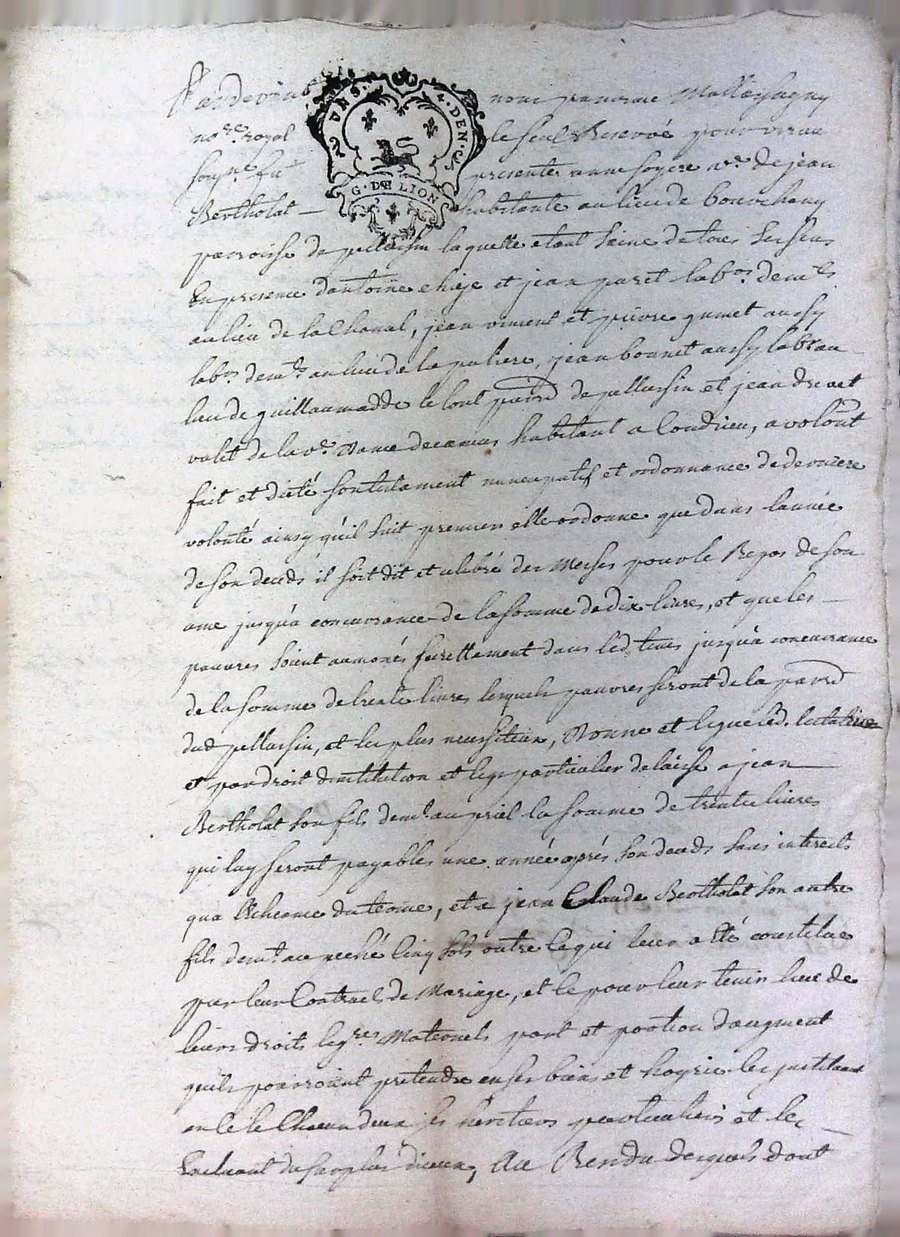 Pardevant nous
no.re royal le seul Reservé
soup.ne fut presente anne v.e de jean
Bertholat habitante au lieu de bourchany
parroisse de pellussin laquelle etant saine de tous ses sens
En presence d'antoine et jean paret lab.rs dem.ts
au lieu de la Chanal, jean et pierre gumet aussy
lab.rs dem.ts au lieu de la jean bonnet aussy lab.r au
lieu de guillaumadde le tout parr.se de pellussin et jean
valet de la v.e Dame habitant a Condrieu, a volont.t
fait et dicté son testament nuncupatif et ordonnance de derniere
volonté ainsy qu'il suit premier elle ordonne que dans lannée
de son deceds il soit dit et celebré des Messes pour le Repos de son
ame jusqu'a concurrance de la somme de dix livres, et que les
pauvres soient aumonés dans led. tems jusqu'a concurrance
de la somme de trente livres lesquels pauvres seront de la parr.se
dud. pellussin, et les plus necessiteux, Donne et legue lad. testatrice
et par droit dinstitution et legs particulier delaisse a jean
Bertholat son fils dem.t au priel la somme de trente livres
qui luy seront payables une année aprés son deceds sans interets
qua lEcheance du terme, et a jean Claude Bertholat son autre
fils dem.t au Cinq sols outre ce qui leur a Eté constitué
par leur Contract de Mariage, et ce pour leur tenir lieu de
leurs droits leg.res Maternels part et portion daugment
quils pourroient pretendre en ses biens et hoyrie les instituant
en ce Chacun deux ses heritiers particuliers et les
Excluant de ses plus dieux, Au Residu desquels dont